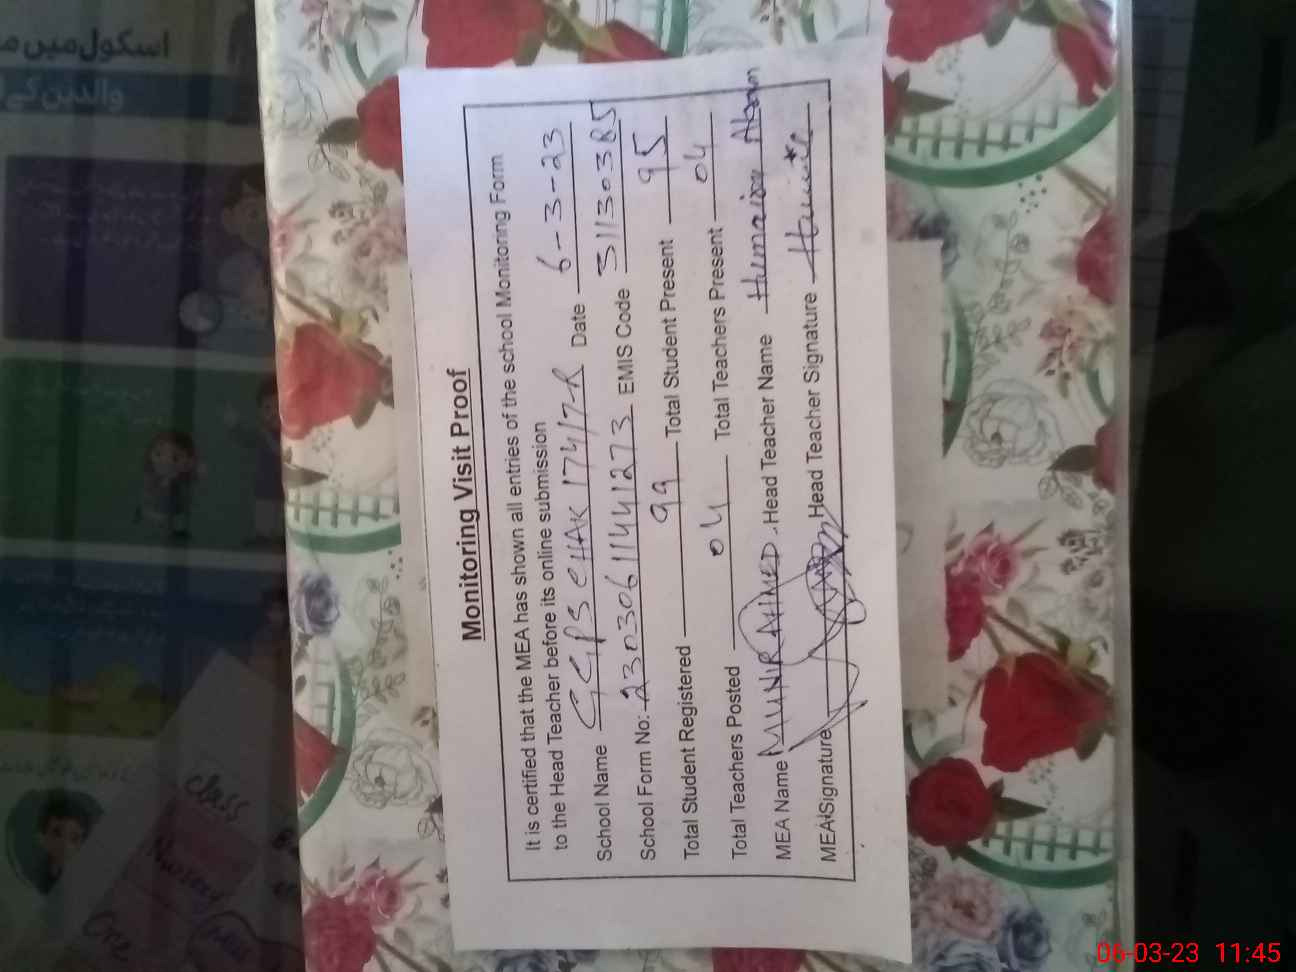 Monitoring Visit Proof
It is certified that the MEA has shown all entries of the school Monitoring Form
to the Head Teacher before its online submission
School Name GGPS CHAK 174/7-R Date 6-3-23
School Form No: 230306114441273 EMIS Code 31130385
Total Student Registered 99 Total Student Present 95
Total Teachers Posted 04 Total Teachers Present 04
MEA Name MUNIR AHMED Head Teacher Name Humaira
MEA Signature Head Teacher Signature
اسکول میں
والدین کے
Class
Nursery
One
06-03-23 11:45